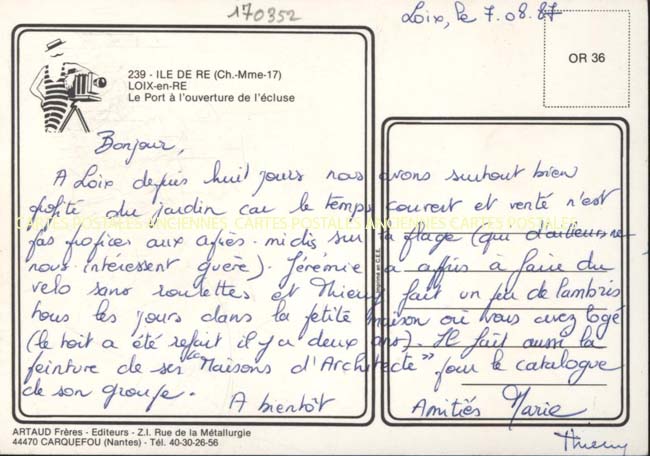 170352
Loix, le 7.08.87
OR 36
239 - ILE DE RE (Ch.-Mme-17)
LOIX-en-RE
Le Port à l'ouverture de l'écluse
Bonjour,
A Loix depuis huit jours nous avons surtout bien
profité du jardin car le temps couvert et venté n'est
CARTES POSTALES ANCIENNES CARTES POSTALES ANCIENNES CARTES POSTALES
pas propices aux après-midis sur la plage (qui d'ailleurs ne
nous intéressent guère). Jérémie a appris à faire du
velo sans roulettes et Thierry fait un peu de lambris
tous les jours dans la petite maison où vous avez logé
(le toit a été refait il y a deux ans). Il fait aussi la
peinture de ses "Maisons d'Architecte" pour le catalogue
de son groupe.
A bientôt
Amitiés Marie
Thierry
ARTAUD Frères - Editeurs - Z.I. Rue de la Métallurgie
44470 CARQUEFOU (Nantes) - Tél. 40-30-26-56